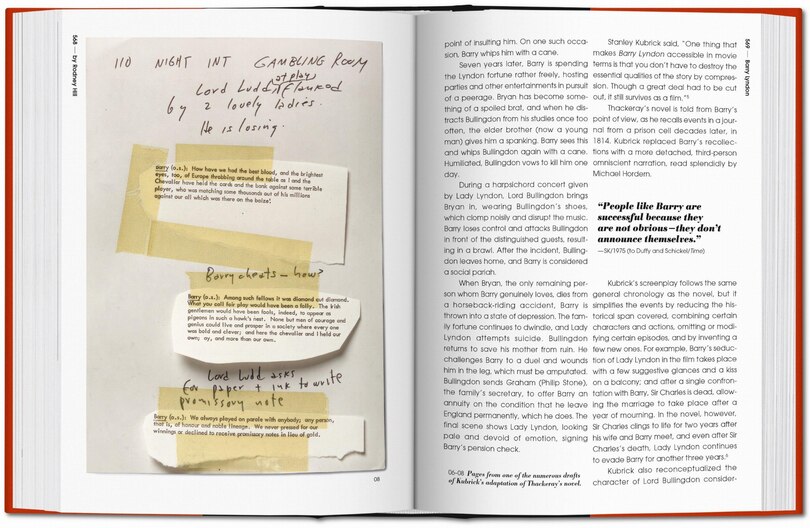 568 — by Rodney Hill
110 NIGHT INT GAMBLING ROOM
at play
Lord Ludd flanked
by 2 lovely ladies.
He is losing.
Barry (o.s.): How have we had the best blood, and the brightest
eyes, too, of Europe throbbing around the table as I and the
Chevalier have held the cards and the bank against some terrible
player, who was matching some thousands out of his millions
against our all which was there on the baize!
Barry cheats – how?
Barry (o.s.): Among such fellows it was diamond cut diamond.
What you call fair play would have been a folly. The Irish
gentlemen would have been fools, indeed, to appear as
pigeons in such a hawk's nest. None but men of courage and
genius could live and prosper in a society where every one
was bold and clever; and here the Chevalier and I held our
own; ay, and more than our own.
Lord Ludd asks
for paper + ink to write
promissory note
Barry (o.s.): We always played on parole with anybody; any person,
that is, of honour and noble lineage. We never pressed for our
winnings or declined to receive promissory notes in lieu of gold.
08
point of insulting him. On one such occa-
sion, Barry whips him with a cane.
Seven years later, Barry is spending
the Lyndon fortune rather freely, hosting
parties and other entertainments in pursuit
of a peerage. Bryan has become some-
thing of a spoiled brat, and when he dis-
tracts Bullingdon from his studies once too
often, the elder brother (now a young
man) gives him a spanking. Barry sees this
and whips Bullingdon again with a cane.
Humiliated, Bullingdon vows to kill him one
day.
During a harpsichord concert given
by Lady Lyndon, Lord Bullingdon brings
Bryan in, wearing Bullingdon's shoes,
which clomp noisily and disrupt the music.
Barry loses control and attacks Bullingdon
in front of the distinguished guests, result-
ing in a brawl. After the incident, Bulling-
don leaves home, and Barry is considered
a social pariah.
When Bryan, the only remaining per-
son whom Barry genuinely loves, dies from
a horseback-riding accident, Barry is
thrown into a state of depression. The fam-
ily fortune continues to dwindle, and Lady
Lyndon attempts suicide. Bullingdon
returns to save his mother from ruin. He
challenges Barry to a duel and wounds
him in the leg, which must be amputated.
Bullingdon sends Graham (Philip Stone),
the family's secretary, to offer Barry an
annuity on the condition that he leave
England permanently, which he does. The
final scene shows Lady Lyndon, looking
pale and devoid of emotion, signing
Barry's pension check.
06-08 Pages from one of the numerous drafts
of Kubrick's adaptation of Thackeray's novel.
Stanley Kubrick said, "One thing that
makes Barry Lyndon accessible in movie
terms is that you don't have to destroy the
essential qualities of the story by compres-
sion. Though a great deal had to be cut
out, it still survives as a film."⁵
Thackeray's novel is told from Barry's
point of view, as he recalls events in a jour-
nal from a prison cell decades later, in
1814. Kubrick replaced Barry's recollec-
tions with a more detached, third-person
omniscient narration, read splendidly by
Michael Hordern.
"People like Barry are
successful because they
are not obvious—they don't
announce themselves."
—SK/1975 (to Duffy and Schickel/Time)
Kubrick's screenplay follows the same
general chronology as the novel, but it
simplifies the events by reducing the his-
torical span covered, combining certain
characters and actions, omitting or modi-
fying certain episodes, and by inventing a
few new ones. For example, Barry's seduc-
tion of Lady Lyndon in the film takes place
with a few suggestive glances and a kiss
on a balcony; and after a single confron-
tation with Barry, Sir Charles is dead, allow-
ing the marriage to take place after a
year of mourning. In the novel, however,
Sir Charles clings to life for two years after
his wife and Barry meet, and even after Sir
Charles's death, Lady Lyndon continues
to evade Barry for another three years.⁶
Kubrick also reconceptualized the
character of Lord Bullingdon consider-
569 — Barry Lyndon